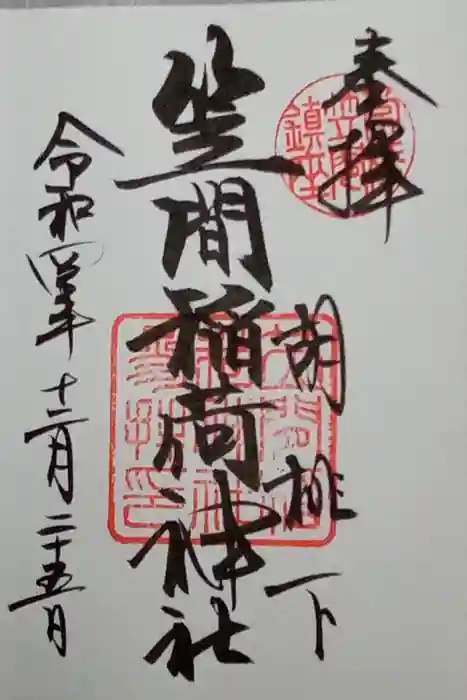 奉拝
鎮座
胡桃下
笠間稲荷神社
令和四年十二月二十五日